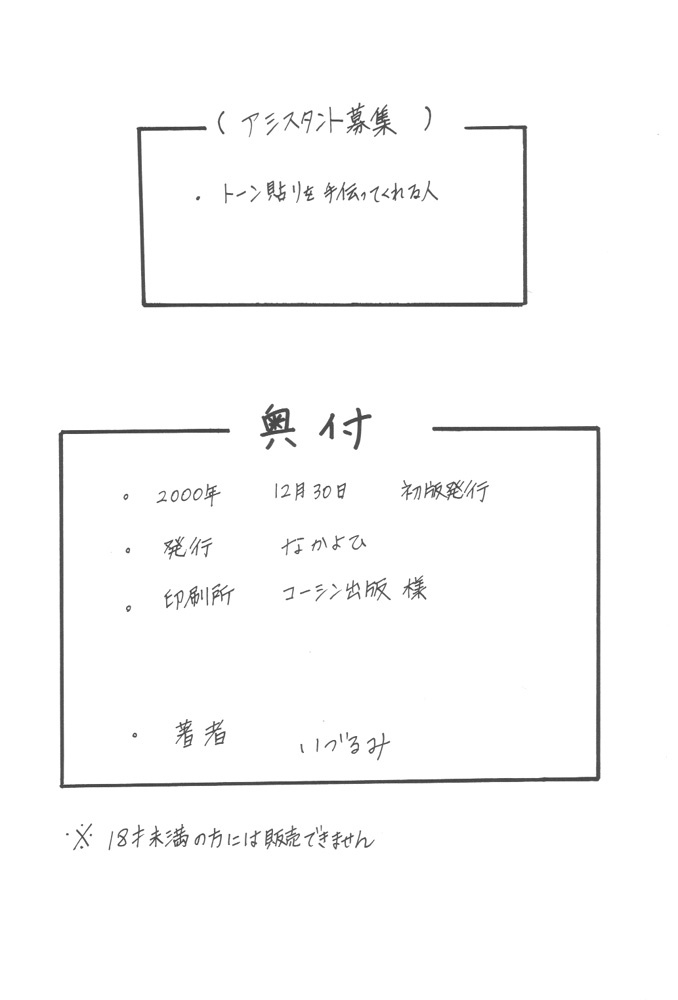 ( アシスタント募集 )
・ トーン貼りを手伝ってくれる人
奥付
。 2000年 12月30日 初版発行
。 発行 なかよひ
。 印刷所 コーシン出版 様
。 著者 いづるみ
※ 18才未満の方には販売できません